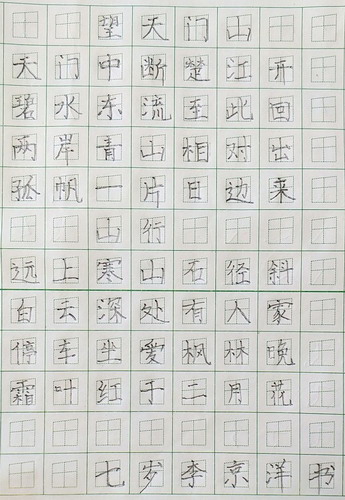 望天门山
天门中断楚江开
碧水东流至此回
两岸青山相对出
孤帆一片日边来
山行
远上寒山石径斜
白云深处有人家
停车坐爱枫林晚
霜叶红于二月花
七岁李京洋书